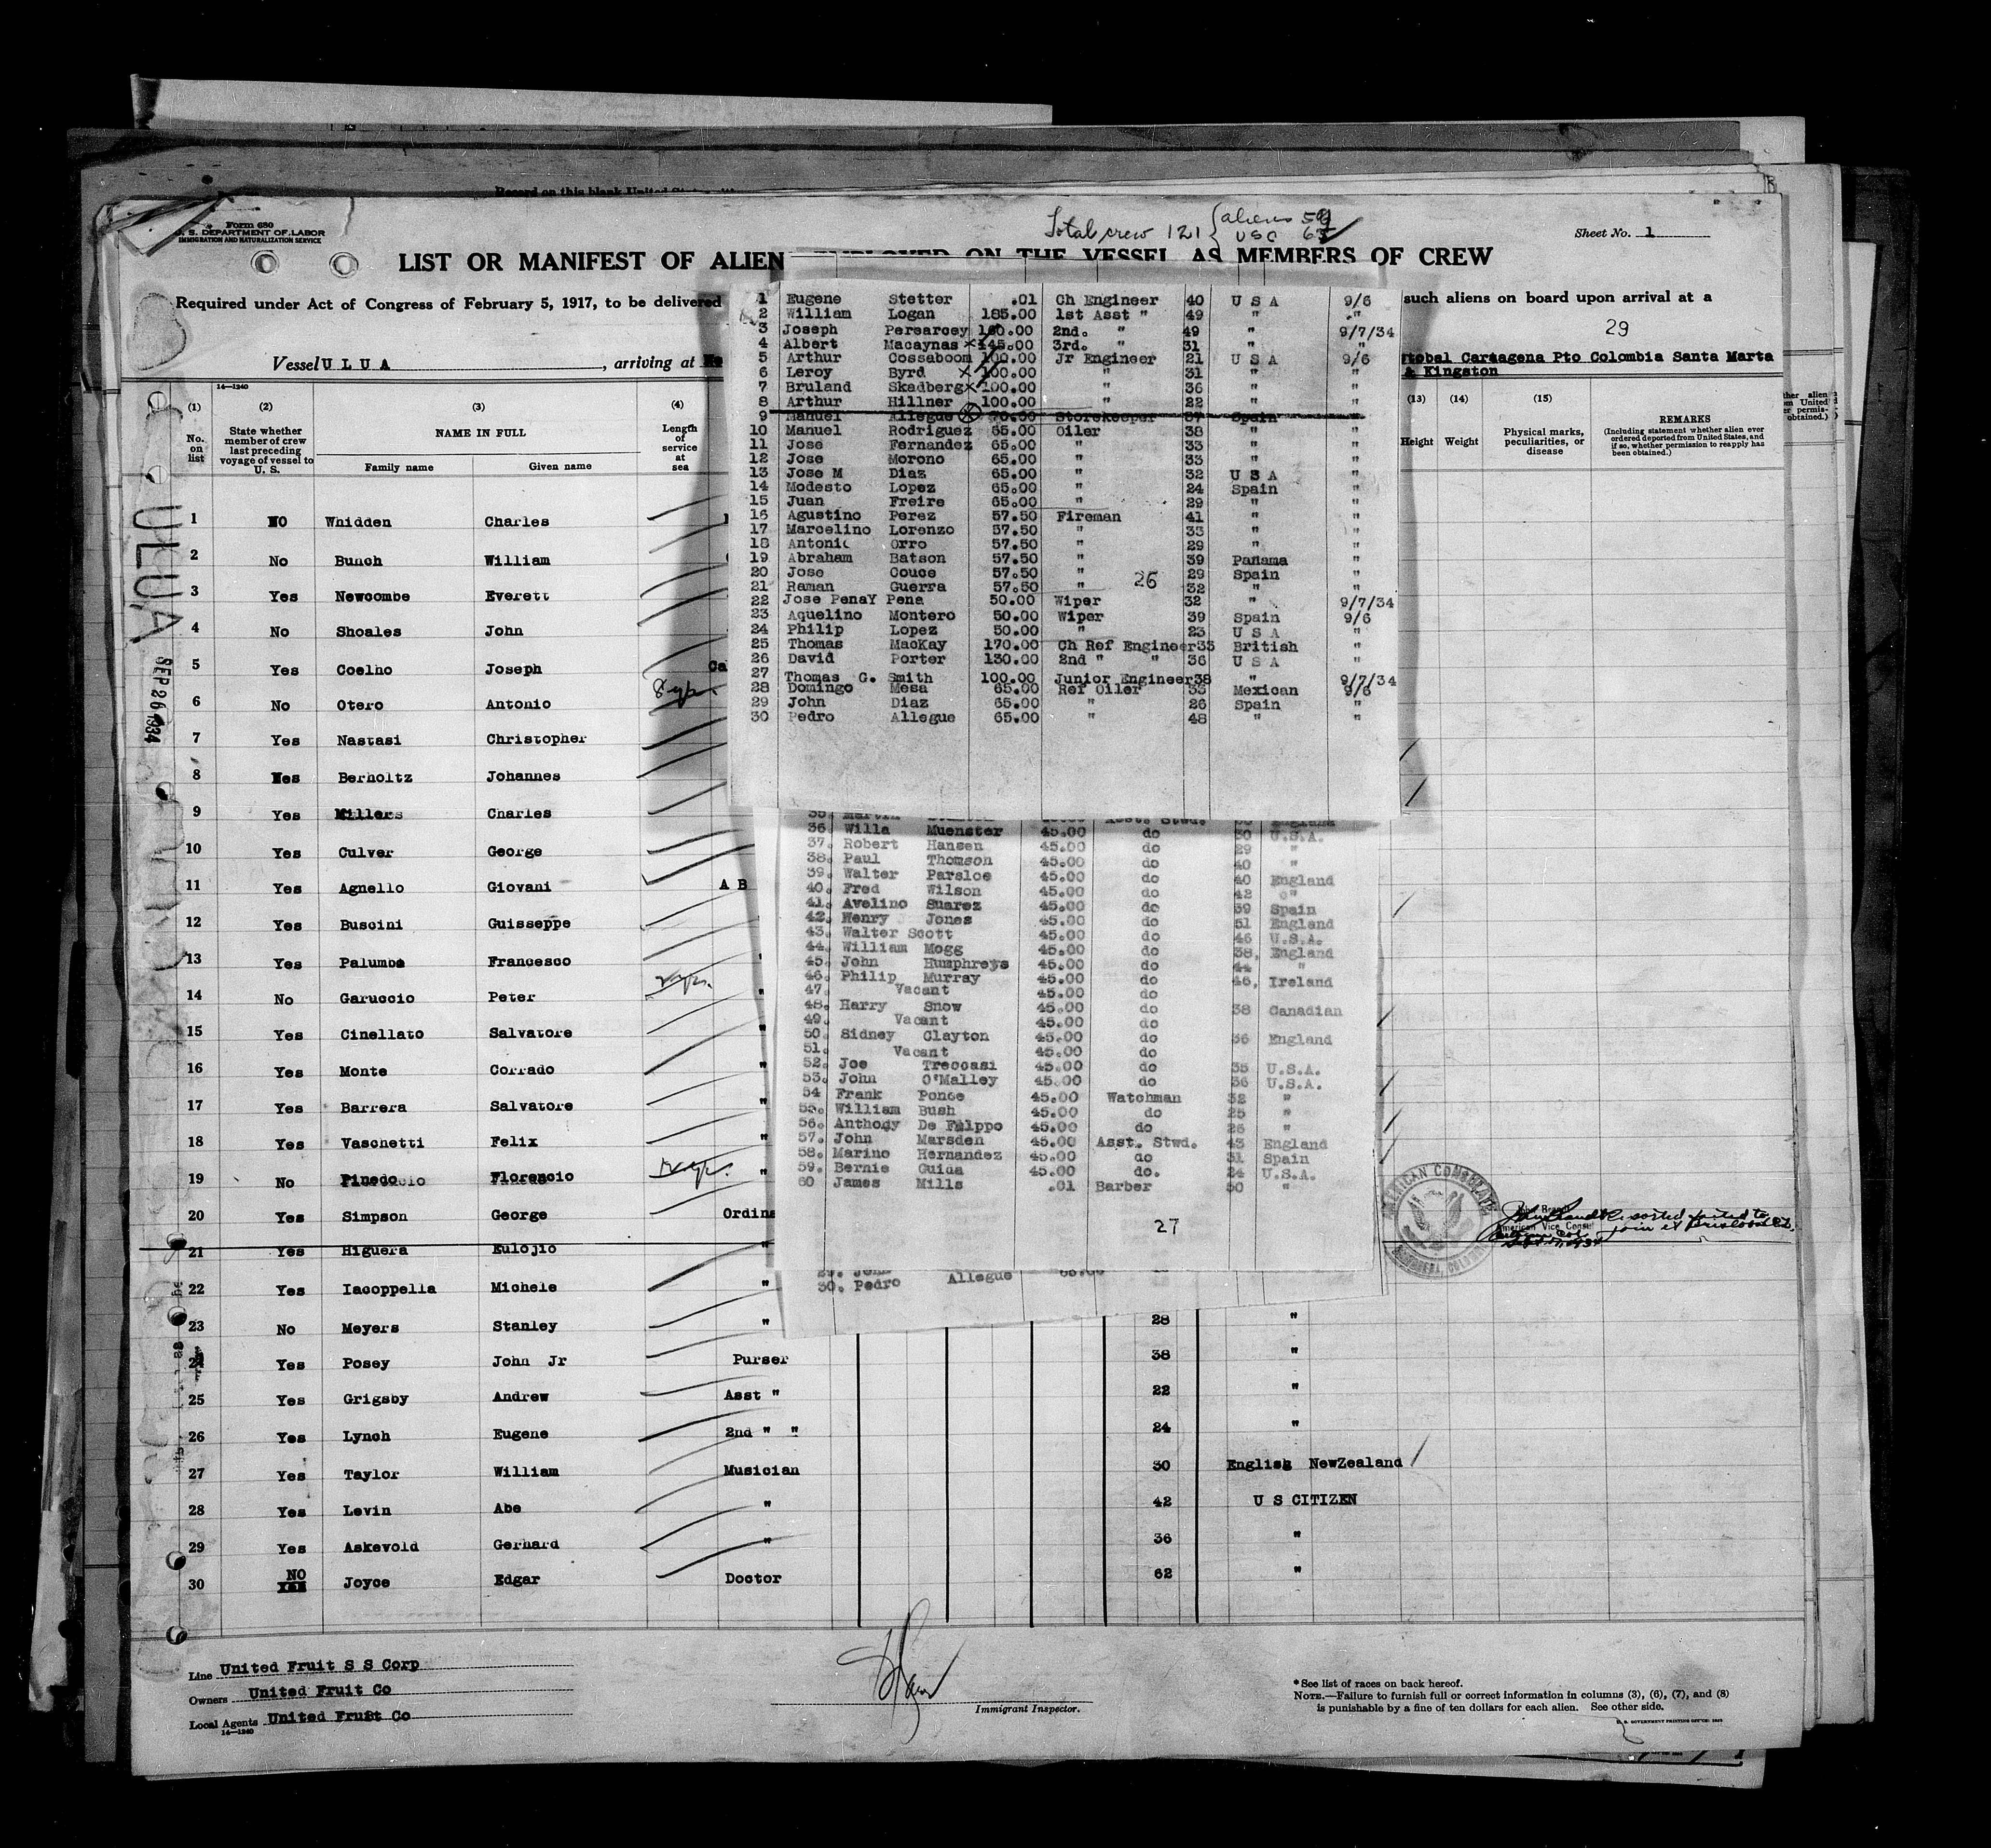 Record on this blank United States
Form 680
U. S. DEPARTMENT OF LABOR
IMMIGRATION AND NATURALIZATION SERVICE
Total crew 121 { aliens 59
USC
Sheet No. 1
LIST OR MANIFEST OF ALIEN EMPLOYED ON THE VESSEL AS MEMBERS OF CREW
Required under Act of Congress of February 5, 1917, to be delivered
such aliens on board upon arrival at a
29
Vessel U L U A, arriving at
Cartagena Pto Colombia Santa Marta
& Kingston
14—1240
(1) (2) (3) (4)
No. on list
State whether member of crew last preceding voyage of vessel to U. S.
NAME IN FULL
Family name Given name
Length of service at sea
(13) (14) (15)
Height Weight Physical marks, peculiarities, or disease
REMARKS
(Including statement whether alien ever ordered deported from United States, and if so, whether permission to reapply has been obtained.)
1 Eugene Stetter .01 Ch Engineer 40 U S A 9/6
2 William Logan 185.00 1st Asst " 49 " "
3 Joseph Perearcey 160.00 2nd. " 49 " 9/7/34
4 Albert Macaynas 145.00 3rd. " 31 " "
5 Arthur Cossaboom 100.00 Jr Engineer 21 U S A 9/6
6 Leroy Byrd 100.00 " 31 " "
7 Bruland Skadberg 100.00 " 36 " "
8 Arthur Hillner 100.00 " 22 " "
9 Manuel Allegue 70.00 Storekeeper 37 Spain "
10 Manuel Rodriguez 65.00 Oiler 38 " "
11 Jose Fernandez 65.00 " 33 " "
12 Jose Morono 65.00 " 33 " "
13 Jose M Diaz 65.00 " 32 U S A "
14 Modesto Lopez 65.00 " 24 Spain "
15 Juan Freire 65.00 " 29 " "
16 Agustino Perez 57.50 Fireman 41 " "
17 Marcelino Lorenzo 57.50 " 33 " "
18 Antonio Orro 57.50 " 29 " "
19 Abraham Batson 57.50 " 39 Panama "
20 Jose Couce 57.50 " 29 Spain "
21 Raman Guerra 57.50 " 32 " "
26
22 Jose PenaY Pena 50.00 Wiper 32 " 9/7/34
23 Aquelino Montero 50.00 Wiper 39 Spain 9/6
24 Philip Lopez 50.00 " 23 U S A "
25 Thomas MacKay 170.00 Ch Ref Engineer 35 British "
26 David Porter 130.00 2nd " " 36 U S A "
27 Thomas G. Smith 100.00 Junior Engineer38 " 9/7/34
28 Domingo Mesa 65.00 Ref Oiler 33 Mexican 9/6
29 John Diaz 65.00 " 26 Spain "
30 Pedro Allegue 65.00 " 48 " "
35. Martin Asst. Stwd. England
36. Willa Muenster 45.00 do 30 U.S.A.
37. Robert Hansen 45.00 do 29 "
38. Paul Thomson 45.00 do 40 "
39. Walter Parsloe 45.00 do 40 England
40. Fred Wilson 45.00 do 42 "
41. Avelino Suarez 45.00 do 39 Spain
42. Henry Jones 45.00 do 51 England
43. Walter Scott 45.00 do 46 U.S.A.
44. William Mogg 45.00 do 38, England
45. John Humphreys 45.00 do 44 "
46. Philip Murray 45.00 do 46, Ireland
47. Vacant 45.00 do
48. Harry Snow 45.00 do 38 Canadian
49. Vacant 45.00 do
50. Sidney Clayton 45.00 do 36 England
51. Vacant 45.00 do
52. Joe Treccasi 45.00 do 35 U.S.A.
53. John O'Malley 45.00 do 36 U.S.A.
54 Frank Ponce 45.00 Watchman 32 "
55. William Bush 45.00 do 25 "
56. Anthony De Falppo 45.00 do 26 "
57. John Marsden 45.00 Asst. Stwd. 43 England
58. Marino Hernandez 45.00 do 31 Spain
59. Bernie Guida 45.00 do. 24 U.S.A.
60 James Mills .01 Barber 50 "
27
29. John 65.00
30. Pedro Allegue
ULUA
SEP 26 1934
1 NO Whidden Charles
2 No Bunch William
3 Yes Newcombe Everett
4 No Shoales John
5 Yes Coelho Joseph Ca
6 No Otero Antonio 8 yrs
7 Yes Nastasi Christopher
8 Yes Berholtz Johannes
9 Yes Millers Charles
10 Yes Culver George
11 Yes Agnello Giovani A B
12 Yes Buscini Guisseppe
13 Yes Palumbo Francesco
14 No Garuccio Peter "
15 Yes Cinellato Salvatore "
16 Yes Monte Corrado "
17 Yes Barrera Salvatore "
18 Yes Vaschetti Felix "
19 No Pinedo Florencio "
20 Yes Simpson George Ordina
21 Yes Higuera Eulojio "
22 Yes Iacoppella Michele "
23 No Meyers Stanley " 28 "
24 Yes Posey John Jr Purser 38 "
25 Yes Grigsby Andrew Asst " 22 "
26 Yes Lynch Eugene 2nd " " 24 "
27 Yes Taylor William Musician 30 English NewZealand
28 Yes Levin Abe " 42 U S CITIZEN
29 Yes Askevold Gerhard " 36 "
30 NO Yes Joyce Edgar Doctor 62 "
AMERICAN CONSULATE
American Vice Consul
Line United Fruit S S Corp
Owners United Fruit Co
Local Agents United Fruit Co
14—1240
Immigrant Inspector.
*See list of races on back hereof.
NOTE.—Failure to furnish full or correct information in columns (3), (6), (7), and (8)
is punishable by a fine of ten dollars for each alien. See other side.
U. S. GOVERNMENT PRINTING OFFICE